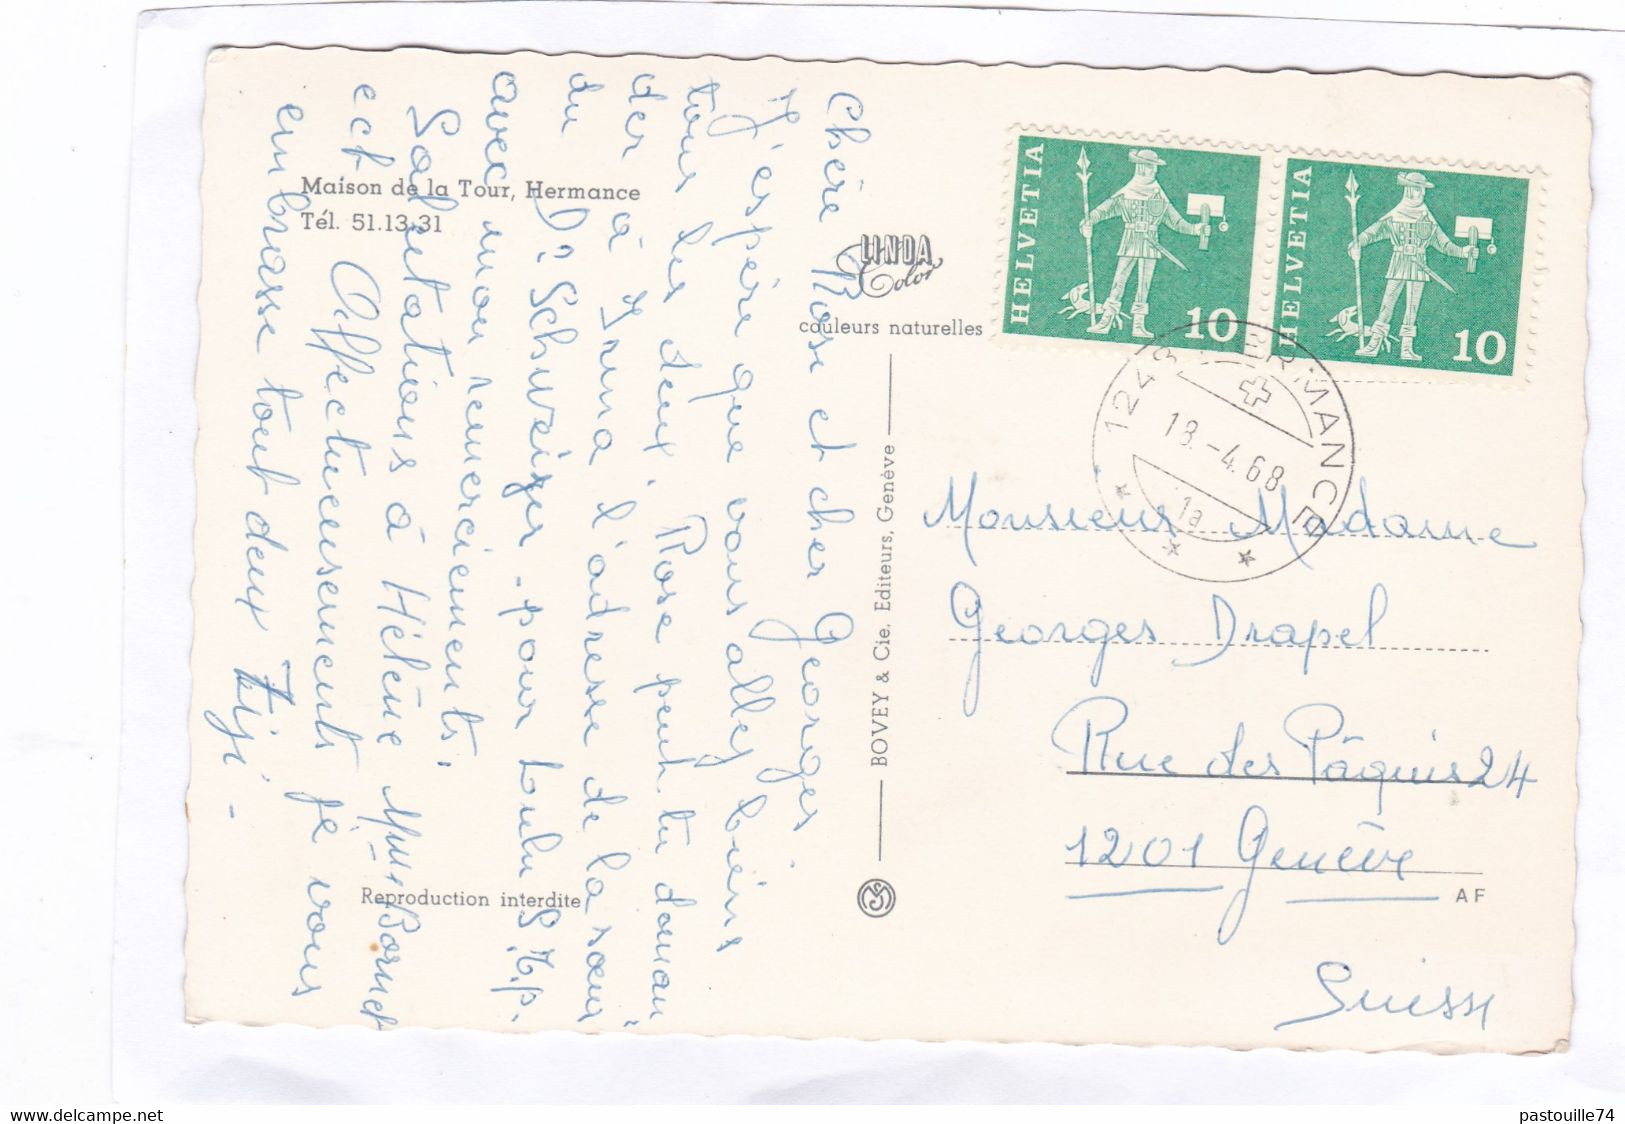 Maison de la Tour, Hermance
Tél. 51.13.31
Chère Rose et cher Georges
J'espère que vous allez biens
tous les deux, Rose peut tu deman
der à Irma l'adresse de la sœur
du Dr Schweizer - pour Loulu S.V.p.
avec mon remerciements.
Salutations à Hélène Mme Bornet
ect. Affectueusements je vous
embrasse tout deux Fifi -
Reproduction interdite
LINDA
Color
couleurs naturelles
BOVEY & Cie, Editeurs, Genève
HELVETIA
10
HELVETIA
10
1248 HERMANCE
18.-4.68
1a
Monsieur Madame
Georges Drapel
Rue des Pâquis 24
1201 Genève
AF
Suisse
www.delcampe.net
pastouille74